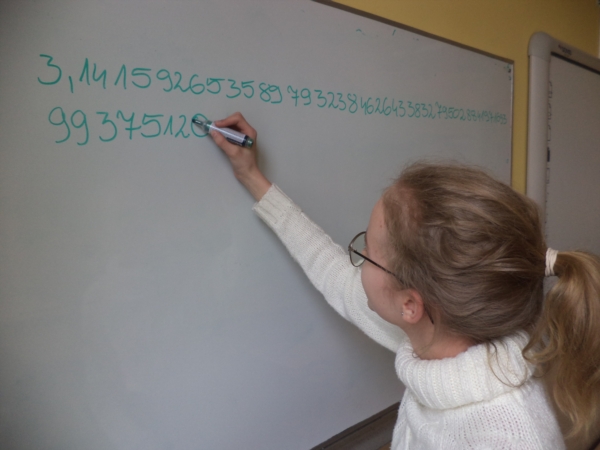 3,14159265358979323846264338327950288419716939
99375120